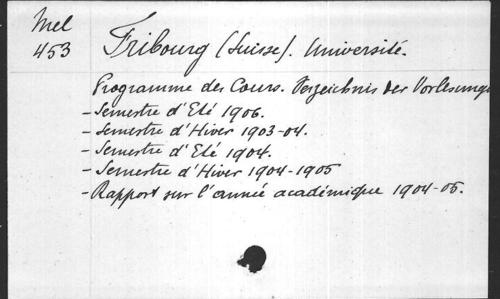 Mel
453
Fribourg (Suisse). Université.
Programme des Cours. Verzeichnis der Vorlesunge
- Semestre d'Eté 1906.
- Semestre d'Hiver 1903-04.
- Semestre d'Eté 1904.
- Semestre d'Hiver 1904-1905
- Rapport sur l'année académique 1904-05.